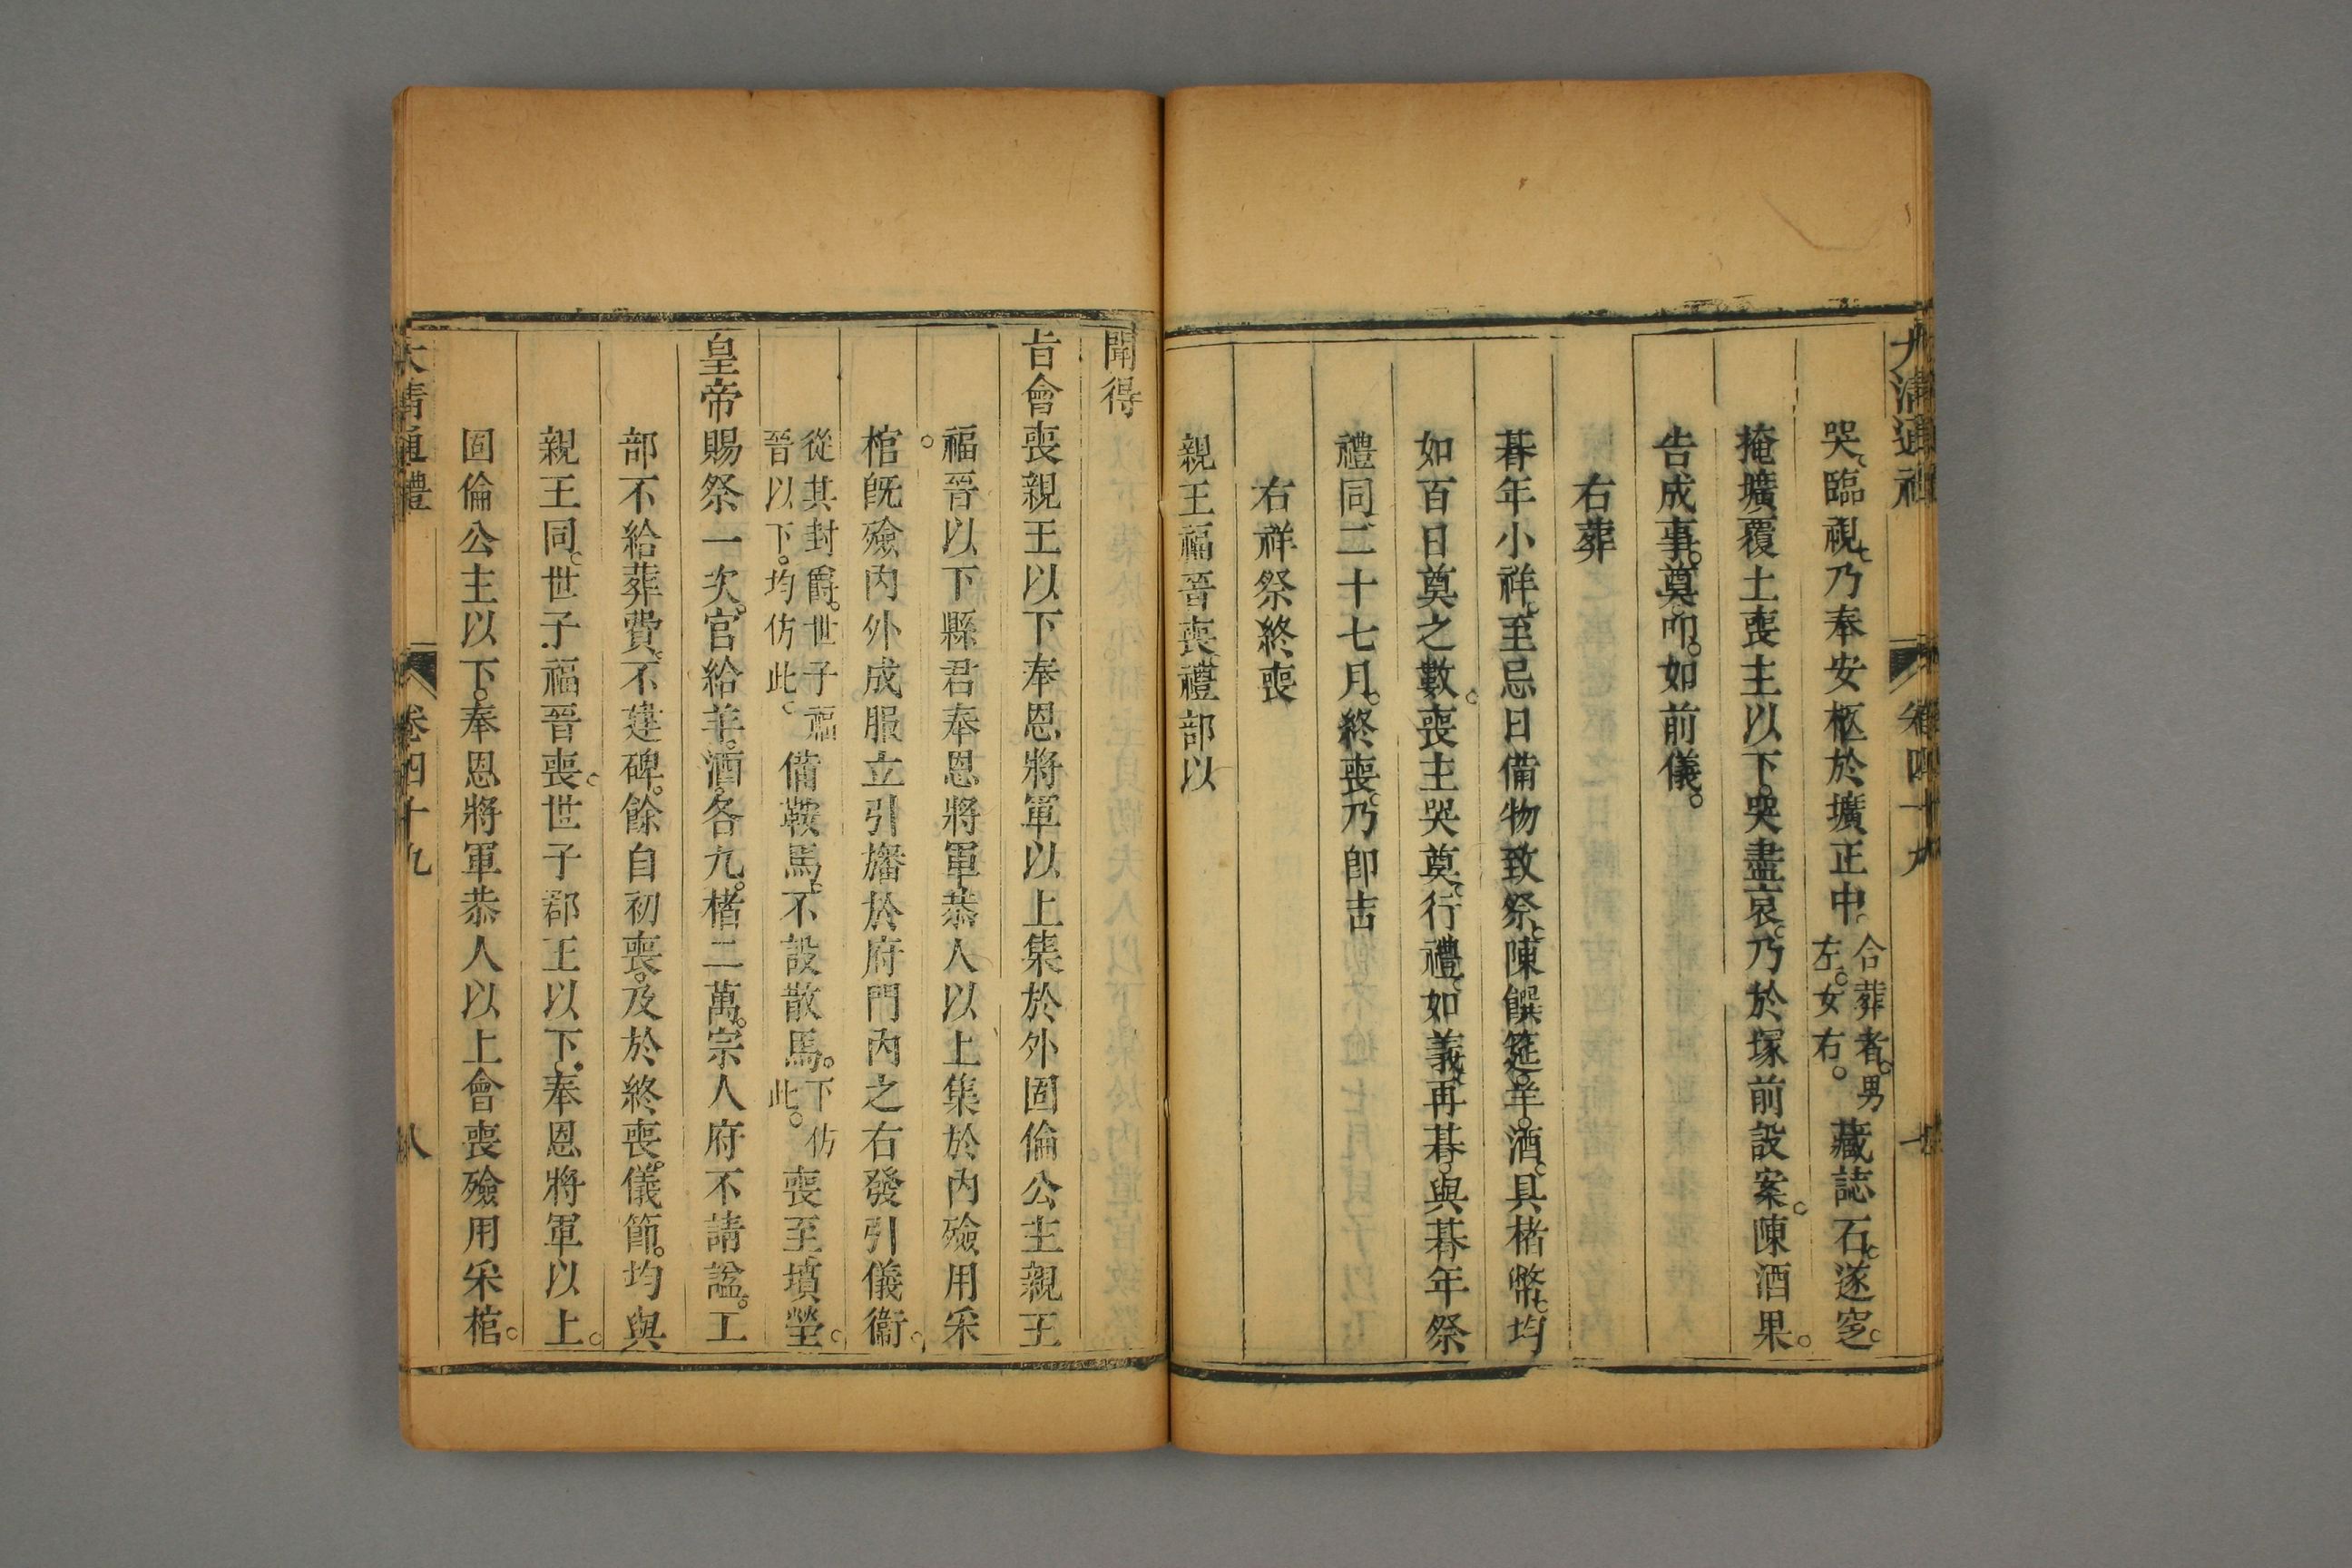 大清通禮 卷四十九
哭。臨視。乃奉安柩於壙正中。合葬者。男左。女右。藏誌石。遂窆。
掩壙覆土喪主以下。哭盡哀。乃於塚前設案。陳酒果。
告成事。奠帛。如前儀。
右葬
朞年小祥。至忌日備物致祭。陳饌筵。羊。酒。具楮幣。均
如百日奠之數。喪主哭奠。行禮。如義。再朞。與朞年祭
禮同二十七月。終喪。乃即吉
右祥祭終喪
親王福晉喪禮部以
聞得
旨會喪親王以下奉恩將軍以上集於外固倫公主親王
福晉以下縣君奉恩將軍恭人以上集於内殮用采
棺旣殮内外成服立引旛於府門内之右發引儀衞。
從其封爵。世子福晉以下。均仿此。備鞍馬。不設散馬。下仿此。喪至墳塋。
皇帝賜祭一次。官給羊。酒。各九。楮二萬。宗人府不請諡。工
部不給葬費。不建碑。餘自初喪。及於終喪。儀節。均與
親王同。世子福晉喪。世子郡王以下。奉恩將軍以上。
固倫公主以下。奉恩將軍恭人以上會喪殮用采棺。
大清通禮 卷四十九 八